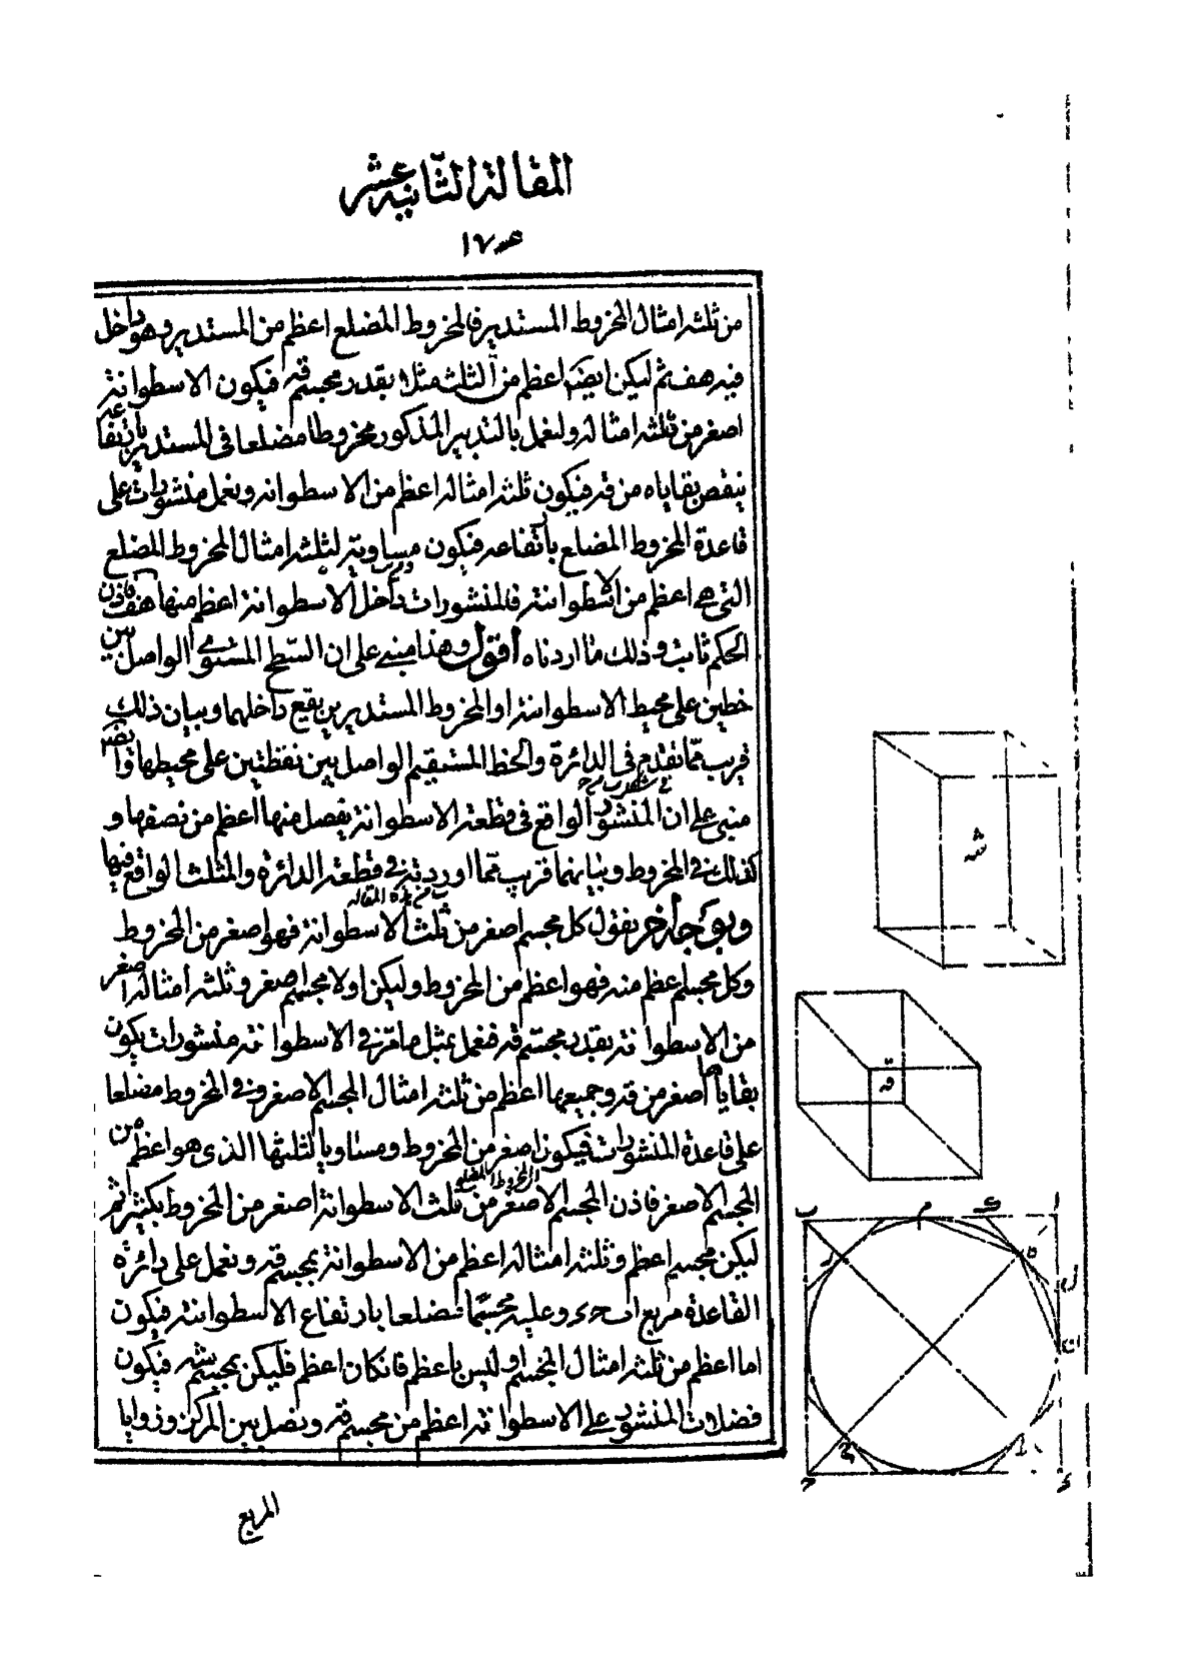 المقالة الثانية عشر
صـ ١٧
من ثلثه امثال المخروط المستدير فالمخروط المضلع اعظم من المستدير وهو داخل
فيه هف ثم ليكن ايضا اعظم من الثلث مثلا بقدر مجسم قه فيكون الاسطوانة
اصغر من ثلثه امثاله ولنعمل بالتدبير المذكور مخروطا مضلعا في المستدير بارتفاعه
ينقص بقاياه من قه فيكون ثلثه امثاله اعظم من الاسطوانه ونعمل منشورات على
قاعدة المخروط المضلع بارتفاعه فيكون مساوية لثلثه امثال المخروط المضلع
التي هي اعظم من الاسطوانة فالمنشورات داخل الاسطوانة اعظم منها هف فاذن
الحكم ثابت وذلك ما اردناه اقول وهذا مبني على ان السطح المستوي الواصل بين
خطين على محيط الاسطوانة او المخروط المستديرين يقع داخلهما وبيان ذلك
قريب مما تقدم في الدائرة والخط المستقيم الواصل بين نقطتين على محيطها وايضا
مبني على ان المنشور الواقع في قطعة الاسطوانة يفصل منها اعظم من نصفها و
كذلك في المخروط وبيانهما قريب مما اوردته في قطعة الدائرة والمثلث الواقع فيها
وبوجه آخر نقول كل مجسم اصغر من ثلث الاسطوانة فهو اصغر من المخروط
وكل مجسم اعظم منه فهو اعظم من المخروط وليكن اولا مجسم اصغر وثلثه امثاله اصغر
من الاسطوانة بقدر مجسم قه فنعمل بمثل ما مر في الاسطوانة منشورات يكون
بقاياها اصغر من قه وجميعها اعظم من ثلثه امثال المجسم الاصغر وفي المخروط مضلعا
على قاعدة المنشورات فيكون اصغر من المخروط ومساويا لثلثها الذي هو اعظم من
المجسم الاصغر فاذن المجسم الاصغر من ثلث الاسطوانة اصغر من المخروط بكثير ثم
ليكن مجسم اعظم وثلثه امثاله اعظم من الاسطوانة بمجسم قه ونعمل على دائرة
القاعدة مربع اب حء وعليه مجسما مضلعا بارتفاع الاسطوانة فيكون
اما اعظم من ثلثه امثال المجسم او ليس باعظم فانكان اعظم فليكن بمجسم شه فيكون
فضلات المنشور على الاسطوانة اعظم من مجسم قه ونصل بين المركز وزوايا
المربع
شه
قه
ب
م
ك
ا
ه
ل
ن
ح
ء